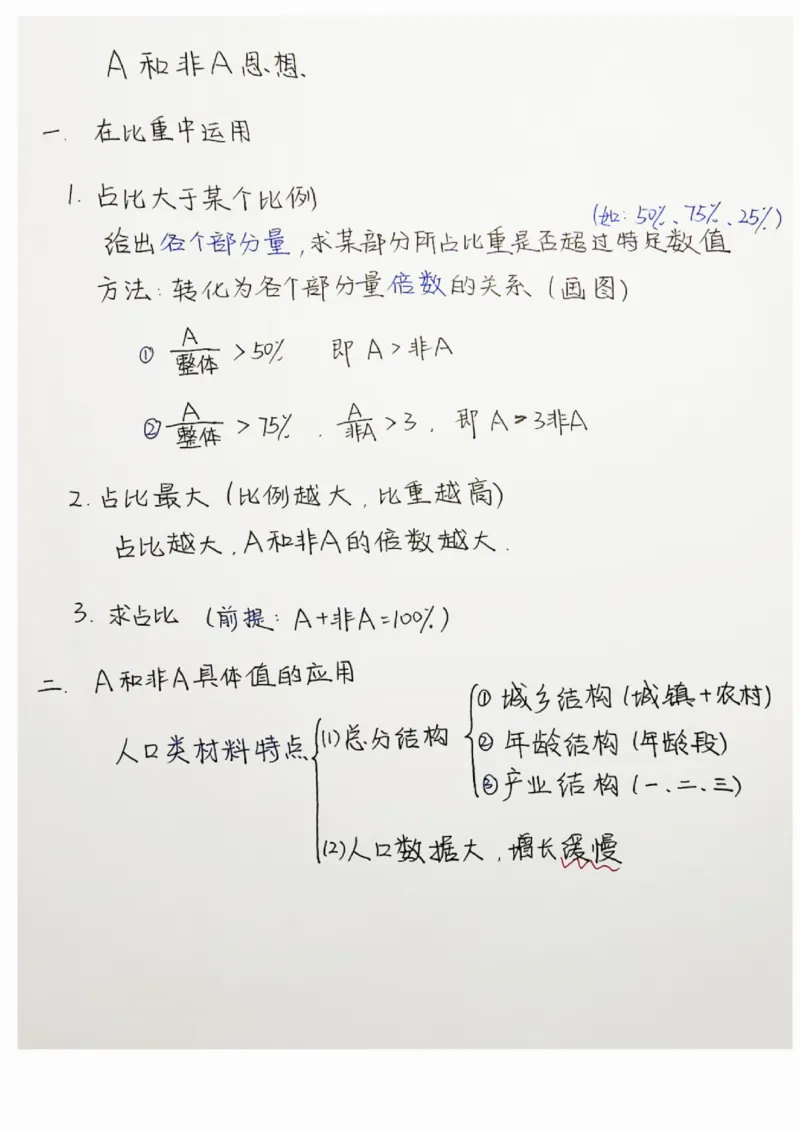 A和非A思想、
一. 在比重中运用
1. 占比大于某个比例
(如: 50%、75%、25%)
给出各个部分量,求某部分所占比重是否超过特定数值
方法: 转化为各个部分量倍数的关系(画图)
① A/整体 > 50% 即 A > 非A
② A/整体 > 75%. A/非A > 3. 即 A > 3非A
2. 占比最大(比例越大,比重越高)
占比越大,A和非A的倍数越大.
3. 求占比 (前提: A+非A=100%)
二. A和非A具体值的应用
人口类材料特点
(1)总分结构
① 城乡结构(城镇+农村)
② 年龄结构(年龄段)
③ 产业结构(一、二、三)
(2)人口数据大,增长缓慢